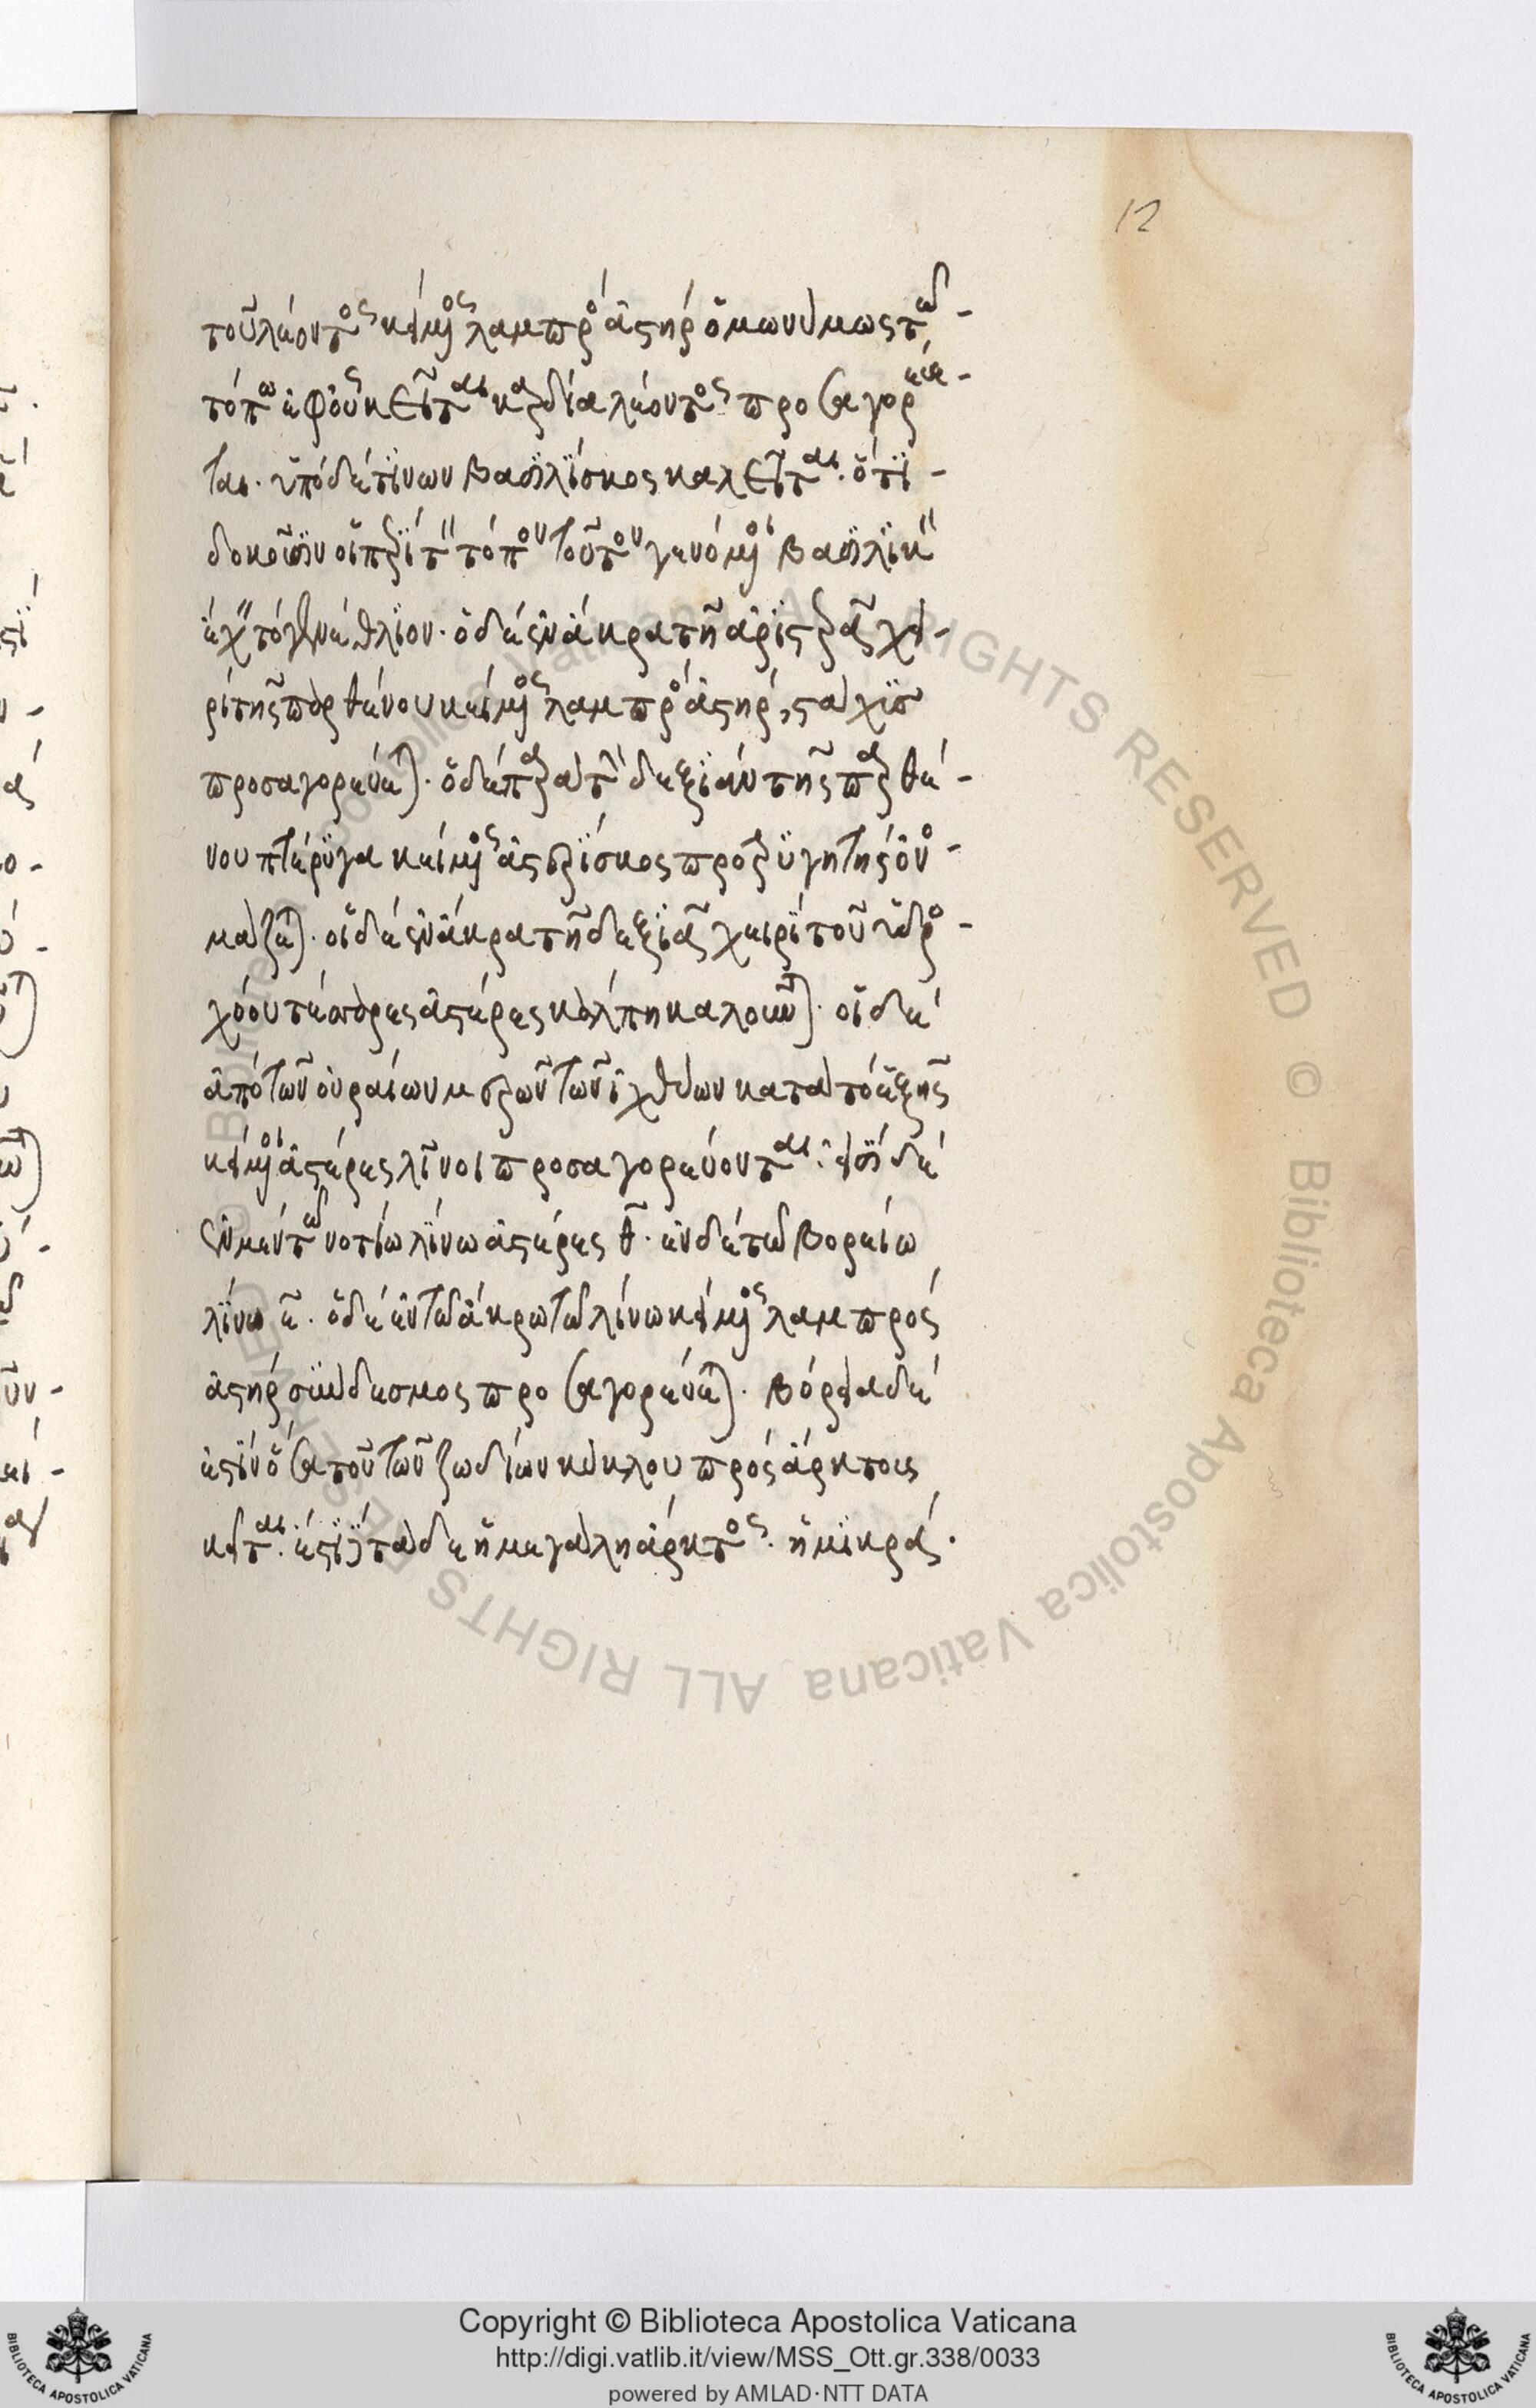 12
τοῦ λέοντος κείμενος λαμπρὸς ἀστὴρ ὁμωνύμως τῷ
τόπῳ ἐφ' οὗ κεῖται καρδία λέοντος προσαγορεύε-
ται. ὑπὸ δέ τινων βασιλίσκος καλεῖται. ὅτι
δοκοῦσιν οἱ περὶ τὸν τόπον τοῦτον γενόμενοι βασιλικὸν
ἔχειν τὸ γενέθλιον. ὁ δὲ ἐν ἄκρα τῇ ἀριστερᾷ χει-
ρὶ τῆς παρθένου κείμενος λαμπρὸς ἀστὴρ, στάχυς
προσαγορεύεται. ὁ δὲ παρὰ τὴν δεξιὰν τῆς παρθέ-
νου πτέρυγα κείμενος ἀστερίσκος προτρυγητὴς ὀνο-
μάζεται. οἱ δὲ ἐν ἄκρα τῇ δεξιᾷ χειρὶ τοῦ ὑδρο-
χόου τέσσαρες ἀστέρες κάλπη καλοῦνται. οἱ δὲ
ἀπὸ τῶν οὐραίων μερῶν τῶν ἰχθύων κατὰ τὸ ἑξῆς
κείμενοι ἀστέρες λῖνοι προσαγορεύονται. εἰσὶ δὲ
ἐν μὲν τῷ νοτίῳ λίνῳ ἀστέρες θ. ἐν δὲ τῷ βορείῳ
λίνῳ ε. ὁ δὲ ἐν τῷ ἄκρῳ τῷ λίνῳ κείμενος λαμπρὸς
ἀστὴρ σύνδεσμος προσαγορεύεται. βόρεια δέ
ἐστιν ὅσα τοῦ τῶν ζωδίων κύκλου πρὸς ἄρκτοις
κεῖται. ἔστι τάδε ἡ μεγάλη ἄρκτος. ἡ μικρά.
Copyright © Biblioteca Apostolica Vaticana
http://digi.vatlib.it/view/MSS_Ott.gr.338/0033
powered by AMLAD·NTT DATA